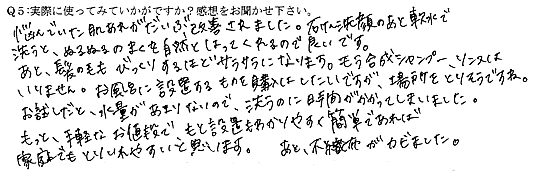 Q5:実際に使ってみていかがですか？感想をお聞かせ下さい。
悩んでいた肌あれがだいぶ改善されました。石けん洗顔のあと軟水で
洗うと、ぬるぬるのまくを自然とはってくれるので良いです。
あと、髪の毛も びっくりするほどサラサラになります。もう合成シャンプー、リンスは
いりません。お風呂に設置するものを購入はしたいですが、場所をとりそうですね。
お試しだと、水量があまりないので、洗うのに時間がかかってしまいました。
もっと、手軽なお値段で、もと設置もわかりやすく簡単であれば
家庭でもとりいれやすいと思います。 あと、不織布がカビました。